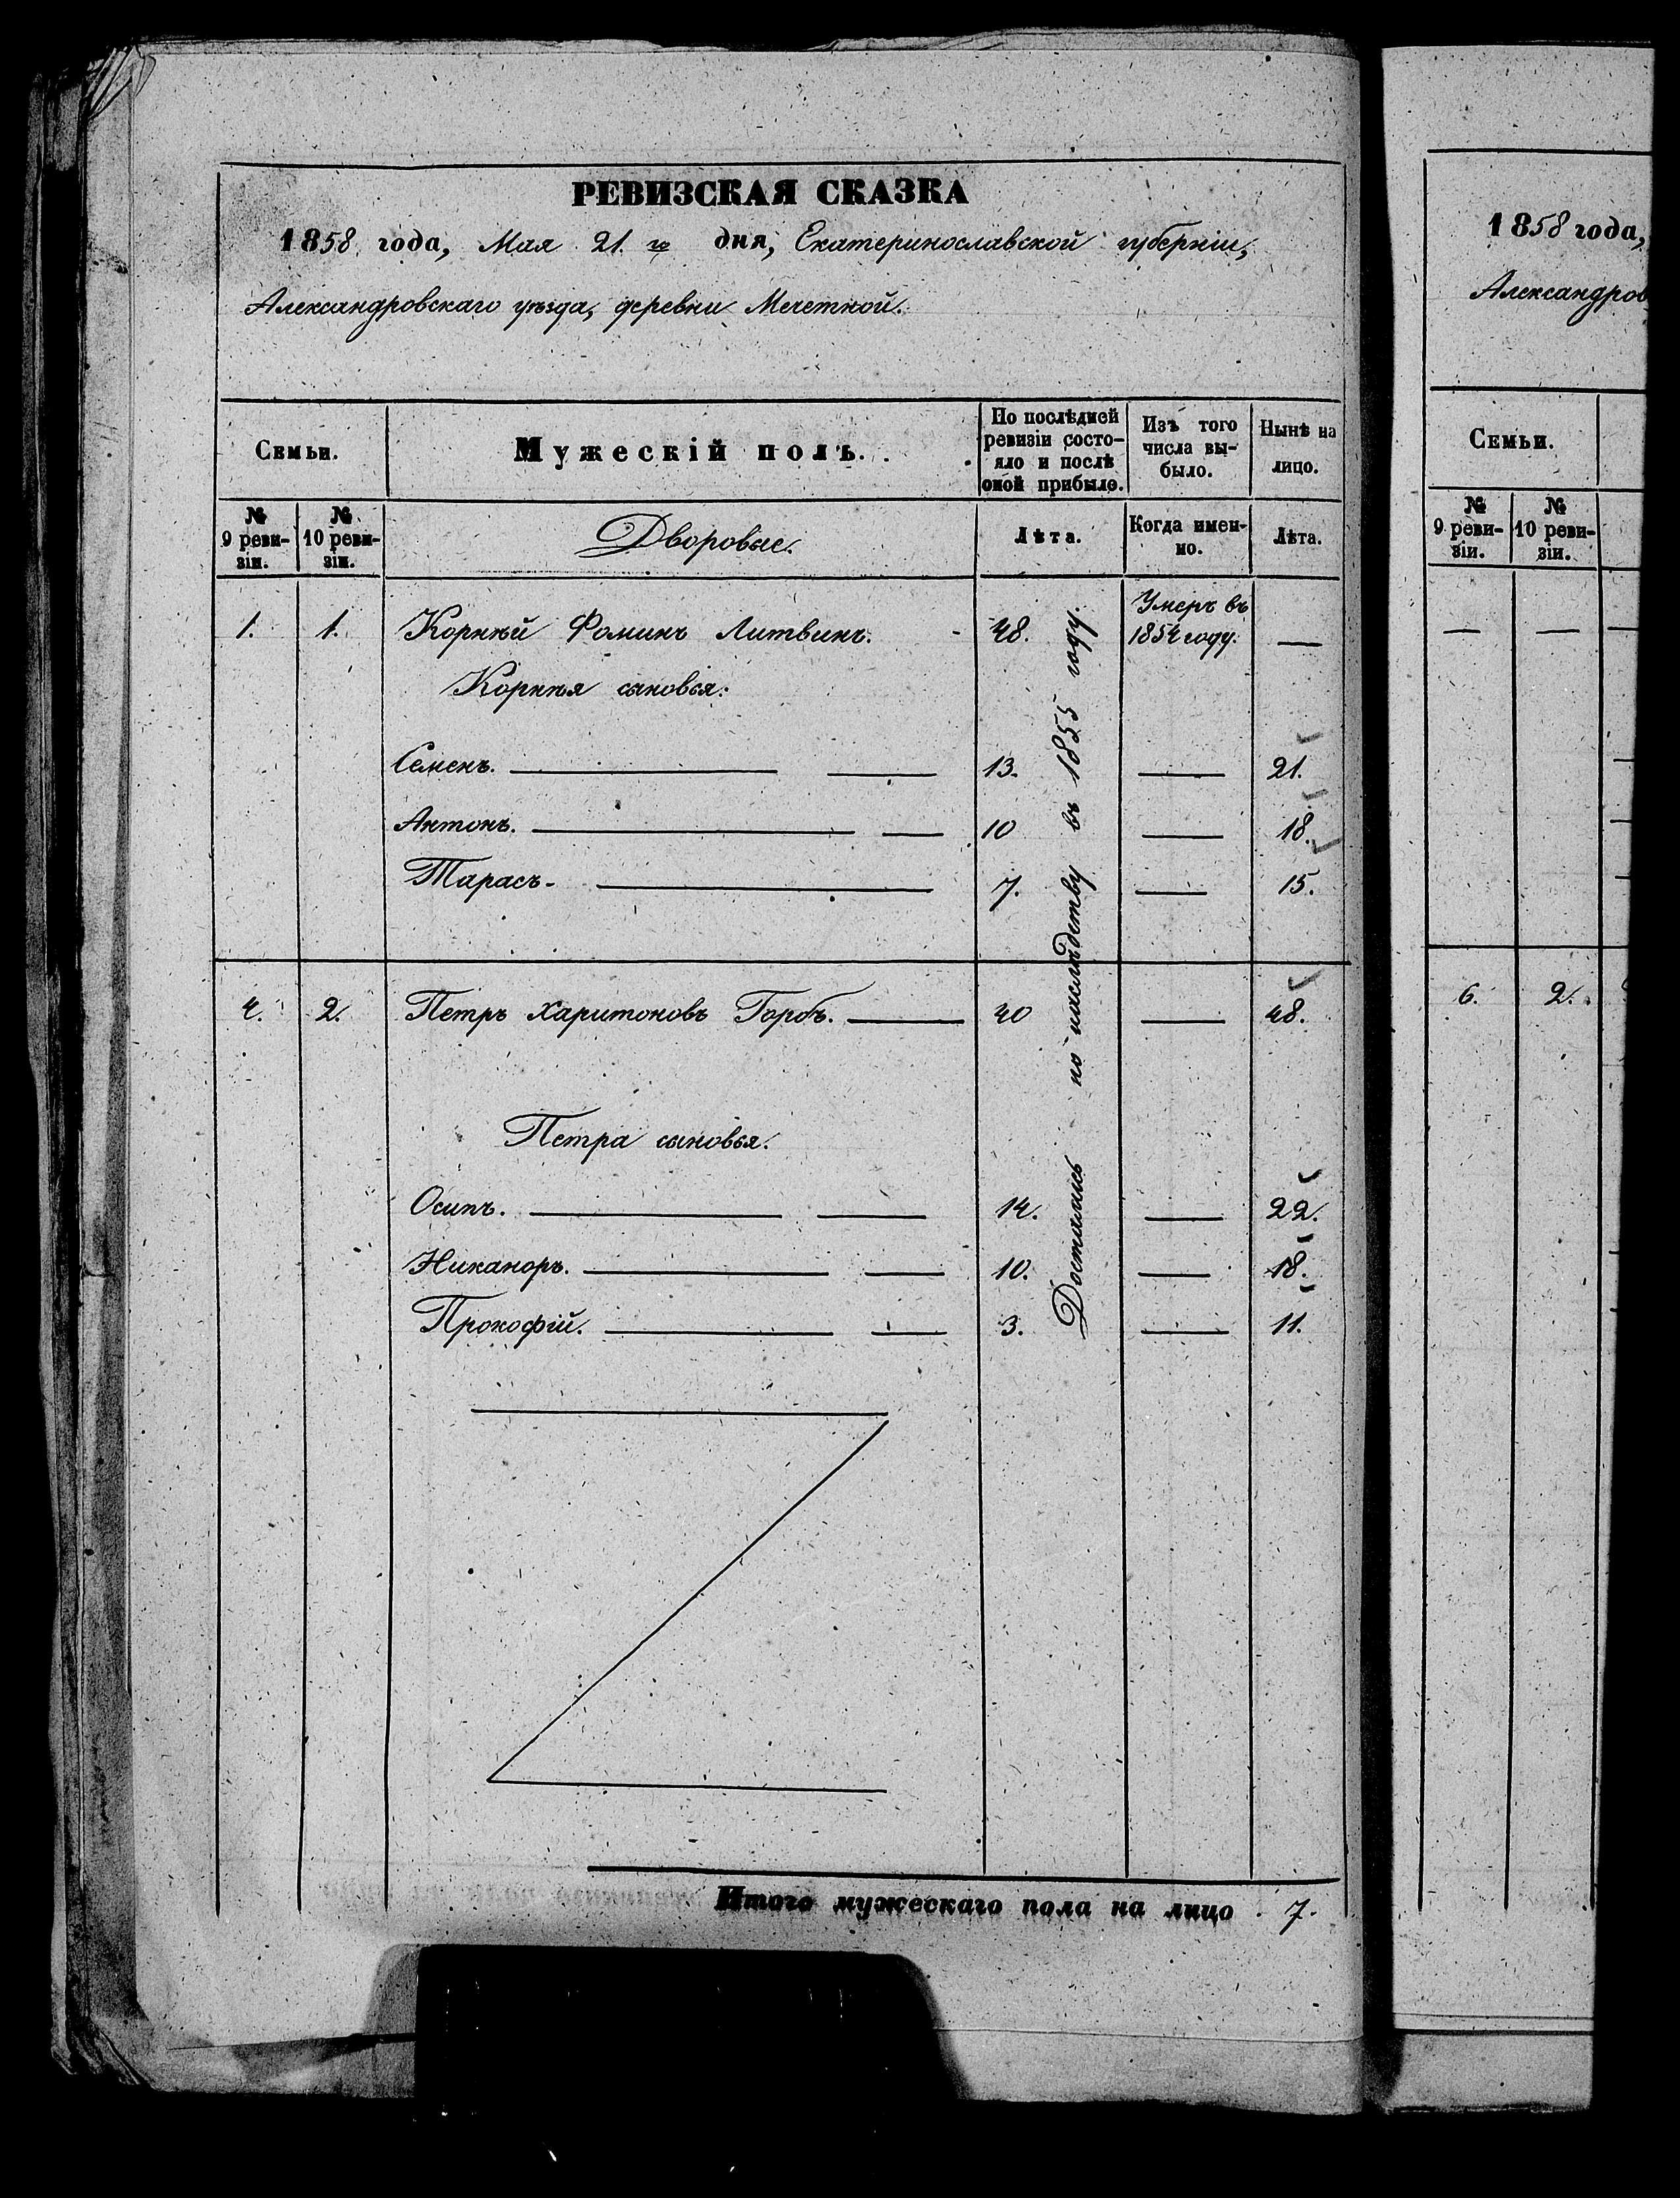 РЕВИЗСКАЯ СКАЗКА
1858 года, Мая 21 го дня, Екатеринославской губерніи,
Александровскаго уѣзда, деревни Мечетной.
Семьи.
Мужескій полъ.
По послѣдней ревизіи состо-
яло и послѣ
оной прибыло.
Изъ того
числа вы-
было.
Нынѣ на
лицо.
№
9 реви-
зіи.
№
10 реви-
зіи.
Дворовые.
Лѣта.
Когда имен-
но.
Лѣта.
1. 1. Корнѣй Фоминъ Литвинъ. - 48. Умеръ въ
1854 году. —
Корнѣя сыновья:
Семенъ. — 13. — 21.
Антонъ. — 10 — 18.
Тарасъ. — 7. — 15.
4. 2. Петръ Харитоновъ Горбъ. — 40 — 48.
Петра сыновья.
Осипъ. — 14. — 22.
Никаноръ. — 10. — 18.
Прокофій. — 3. — 11.
Достались по наслѣдству въ 1855 году.
Итого мужескаго пола на лицо . 7.
1858 года,
Александров
Семьи.
№
9 реви-
зіи.
№
10 реви-
зіи.
— —
6. 2.